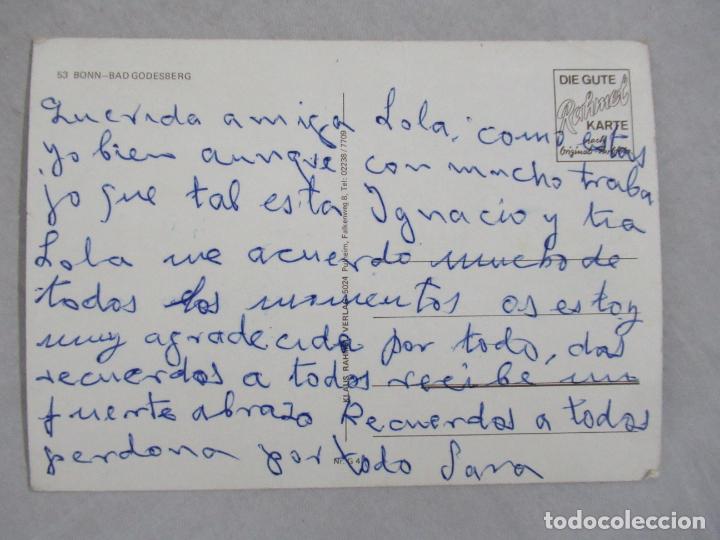 53 BONN-BAD GODESBERG
DIE GUTE
Rahmel
KARTE
nach
Original-Farbfoto
Querida amiga Lola, como estas
yo bien aunque con mucho traba
jo que tal esta Ignacio y tia
Lola me acuerdo mucho de
todos los momentos os estoy
muy agradecida por todo, das
recuerdos a todos recibe un
fuerte abrazo Recuerdos a todos
perdona por todo Sara
KLAUS RAHMEL VERLAG 5024 Pulheim, Falkenweg 8, Tel: 02238/7709
Nr. G 4
todocoleccion.net